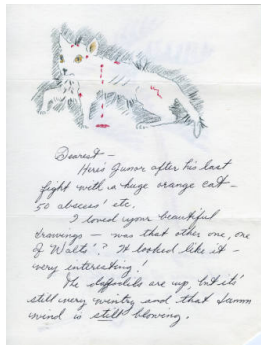 Dearest —
Here's Junor after his last
fight with a huge orange cat —
50 abscess' etc.
I loved your beautiful
drawings — was that other one, one
of Walts'? It looked like it —
very interesting!
The daffodils are up, but its'
still very wintry and that damn
wind is still blowing.